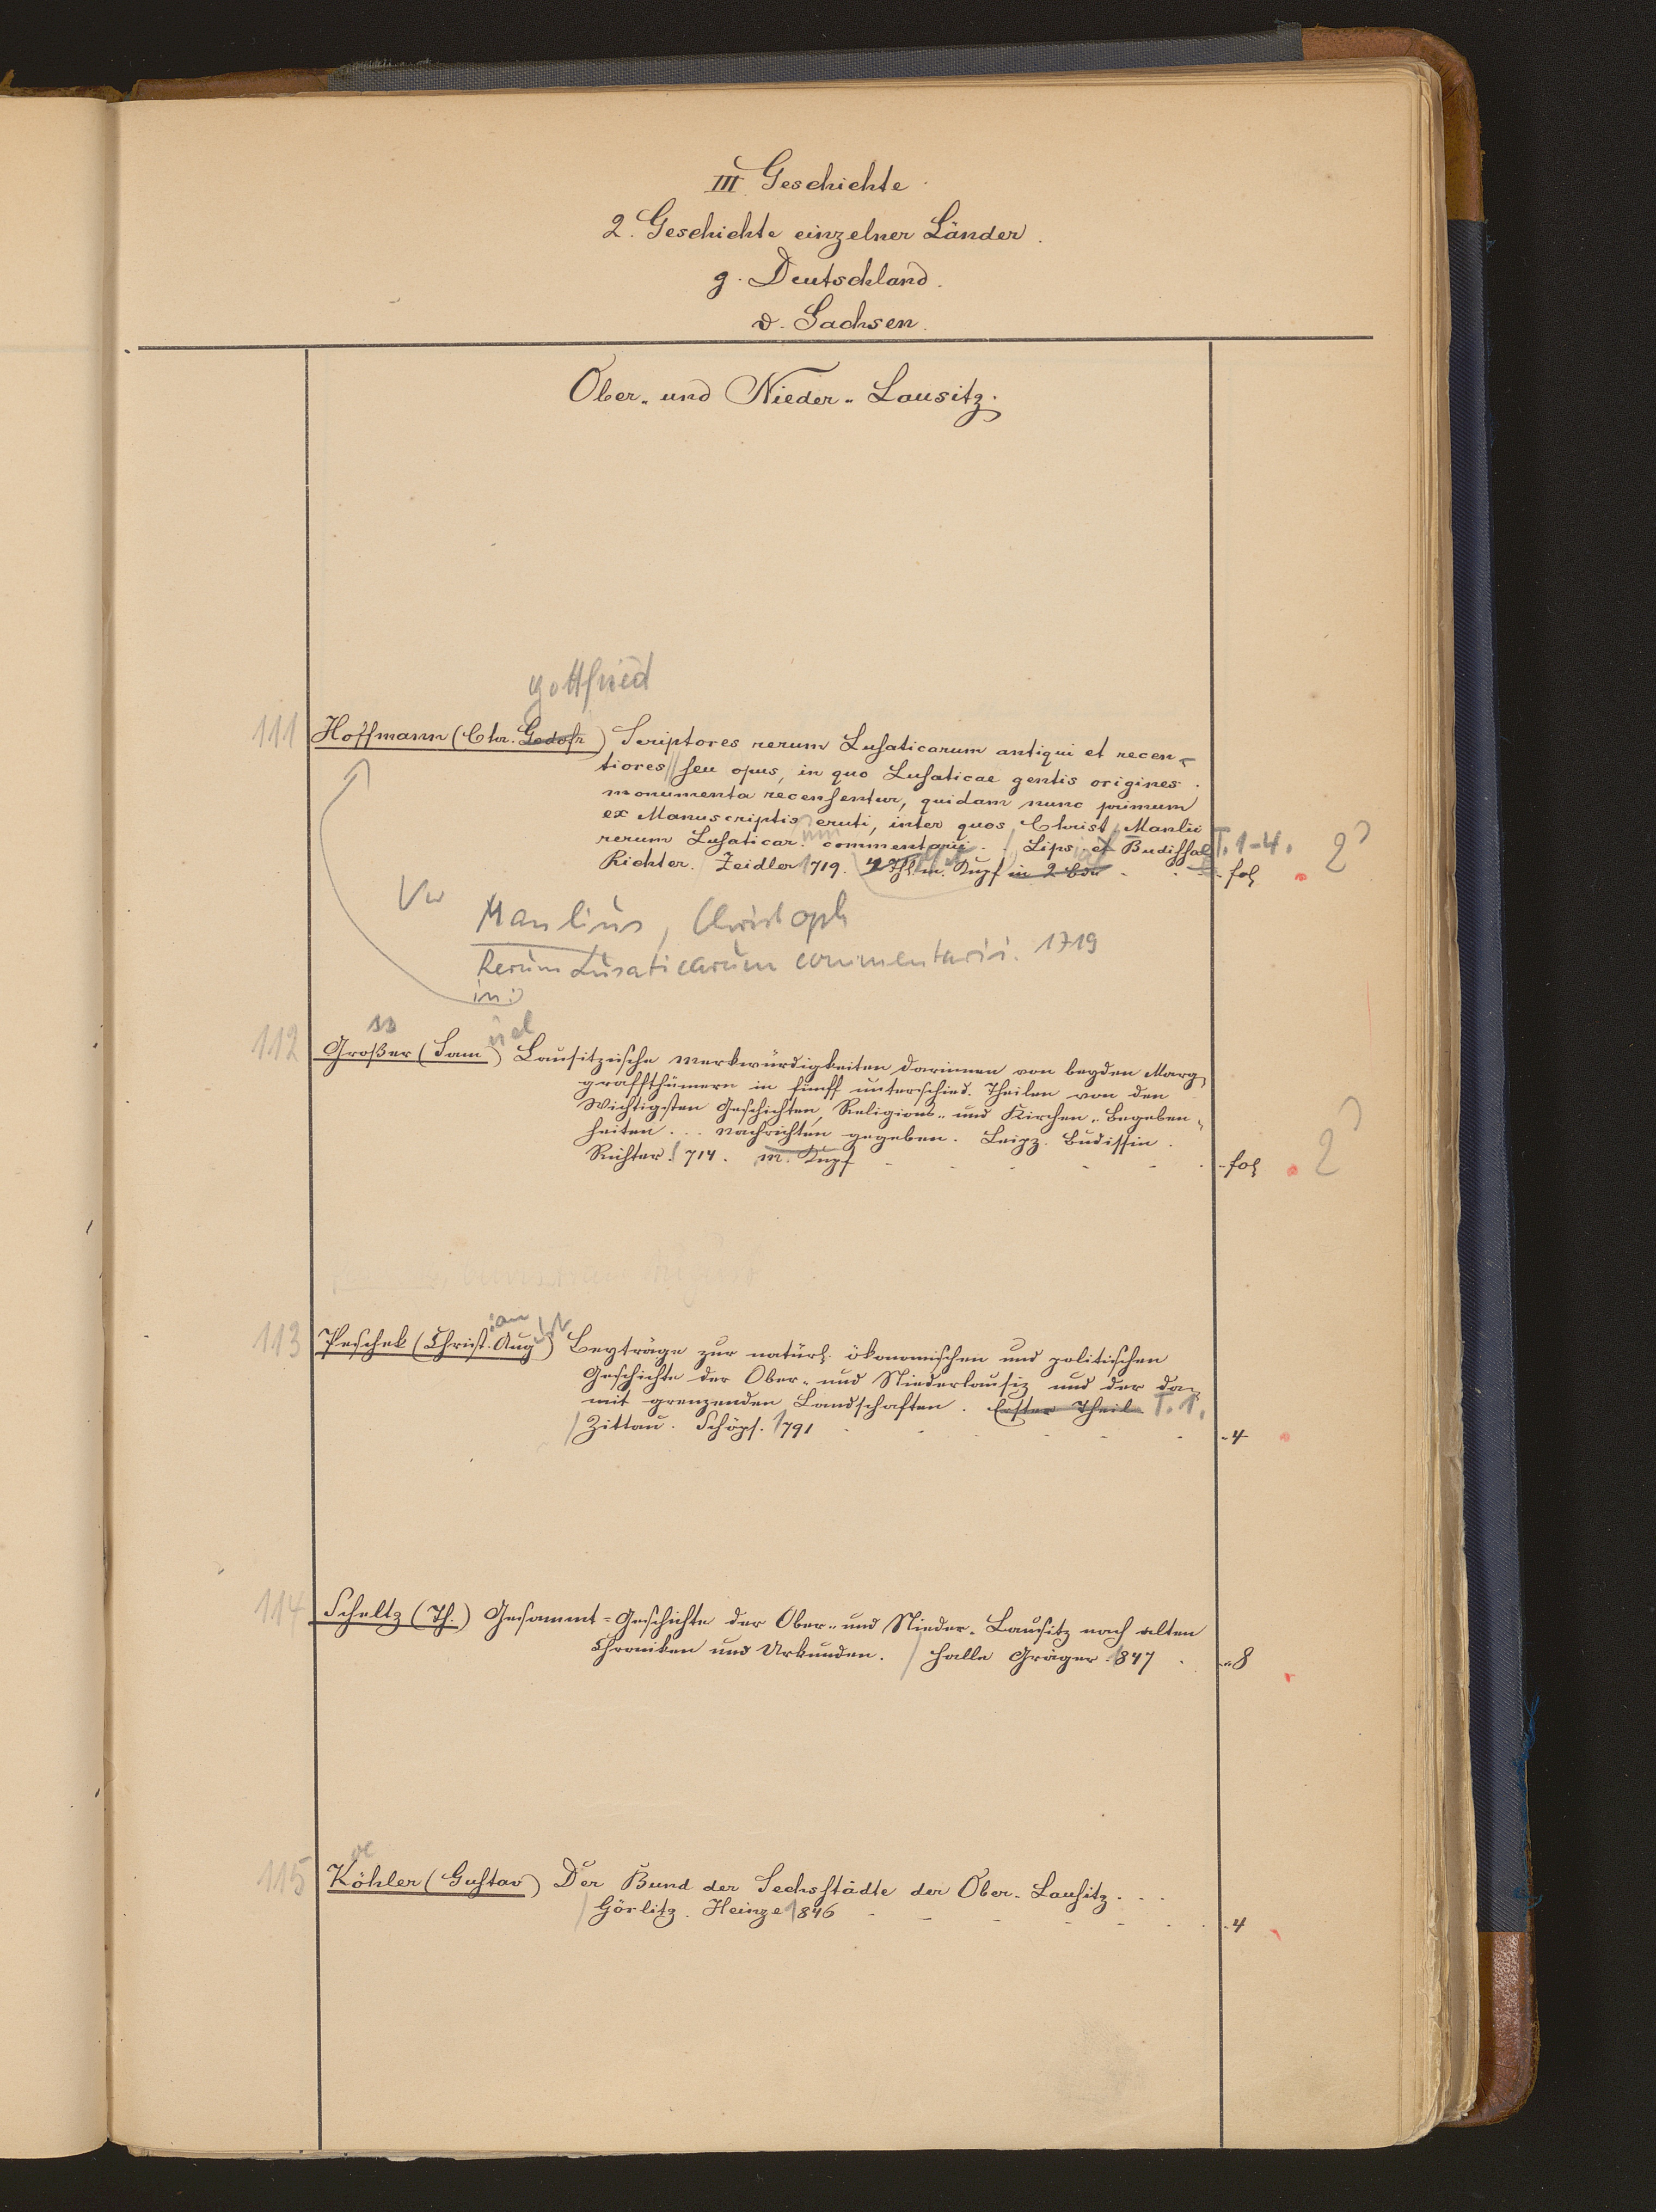 III Geschichte.
2. Geschichte einzelner Länder.
g. Deutschland.
d. Sachsen.
Ober- und Nieder-Lausitz.
gottfried
111 Hoffmann (Chr. Godofr) Scriptores rerum Lusaticarum antiqui et recen-
tiores // seu opus, in quo Lusaticae gentis origines.
monumenta recensentur, quidam nunc primum
ex Manuscriptis eruti, inter quos, Christ. Manlii
rerum Lusaticar. um commentarii . . / Lips. et Budissae T. 1-4. 2°
Richter. Zeidler 1719. 4 Thl m. Kupf in 2 Bdn - fol
Vw Manlius, Christoph
Rerum Lusaticarum commentarii. 1719
in:
ss uel
112 Großer (Sam) Lausitzische Merkwürdigkeiten darinnen von beyden Marg-
graffthümern in fünff unterschied. Theilen von den
Wichtigsten Geschichten, Religions- und Kirchen-Begeben-
heiten . . . Nachrichten gegeben. Leipz. Budissin.
Richter 1714. m. Kupf - fol 2°
ian ust
113 Peschek (Christ. Aug) Beyträge zur natürl. ökonomischen und politischen
Geschichte der Ober- und Niederlausiz und der da-
mit grenzenden Landschaften. Erster Theil T. 1.
/ Zittau. Schöps. 1791 - 4
114 Scheltz (Th.) Gesammt-Geschichte der Ober- und Nieder-Lausitz nach alten
Chroniken und Urkunden. / Halle Gräger. 1847 . - 8
oe
115 Köhler (Gustav) Der Bund der Sechsstädte der Ober-Lausitz. . .
/ Görlitz. Heinze 1846 - 4